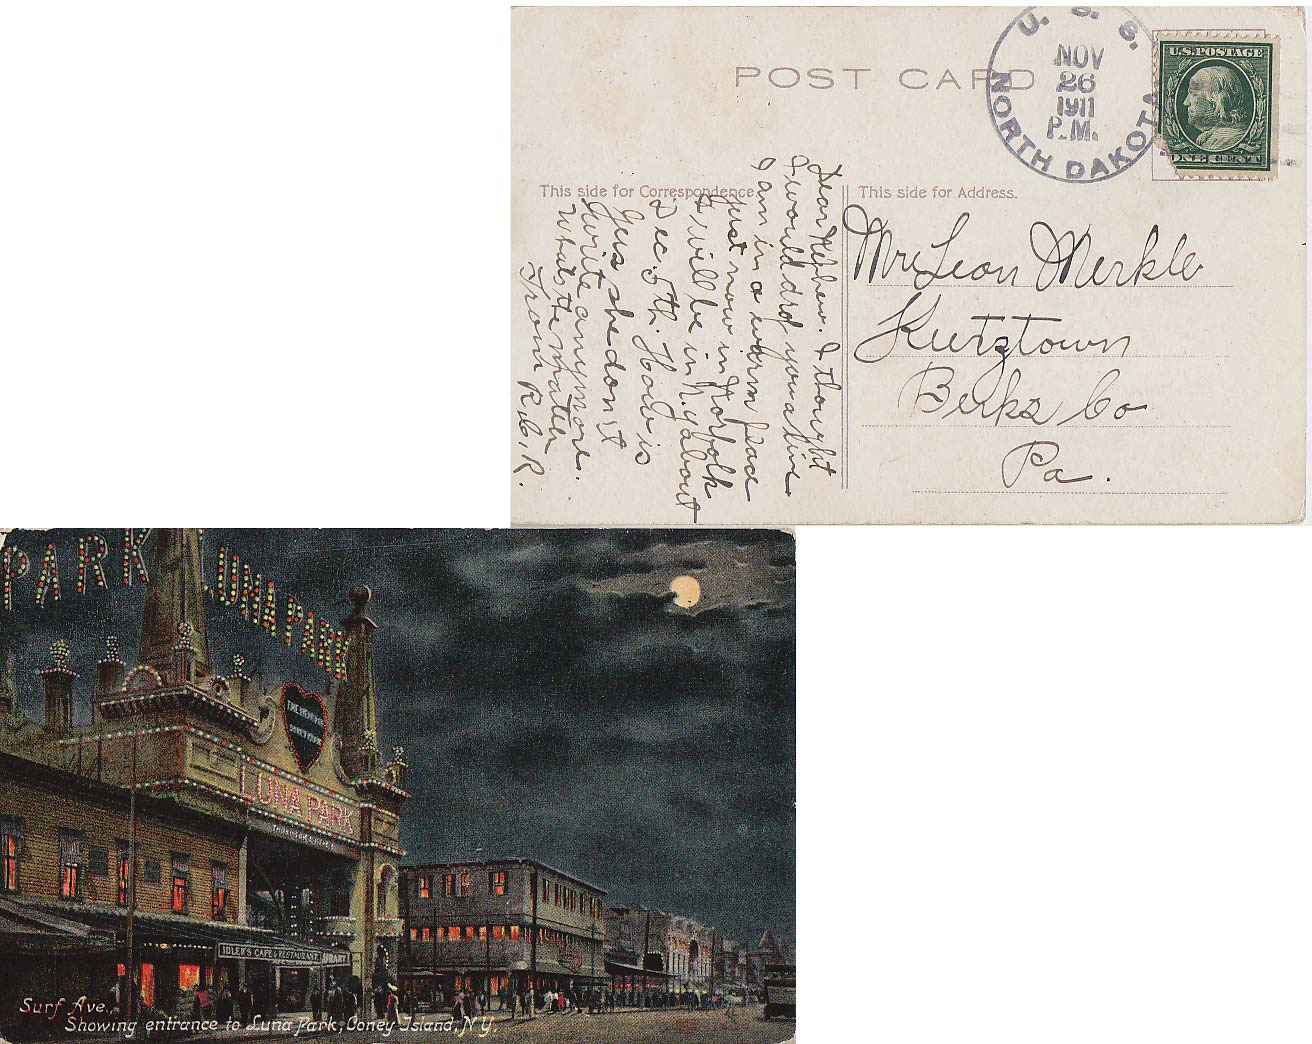 POST CARD
U. S. S. NORTH DAKOTA
NOV
26
1911
P.M.
U.S. POSTAGE
ONE CENT
This side for Correspondence
This side for Address.
Dear Nephew. I thought
I would drop you a line
I am in a warm place
just now in Norfolk
I will be in N.Y about
Dec 5th. How is
Gus she don't
write anymore.
Whats the matter
From R.C.R.
Mr Leon Merkle
Kutztown
Berks Co
Pa.
PARK
LUNA PARK
THE HEART OF
CONEY ISLAND
LUNA PARK
IDLER'S CAFE & RESTAURANT
Surf Ave.,
Showing entrance to Luna Park, Coney Island, N.Y.